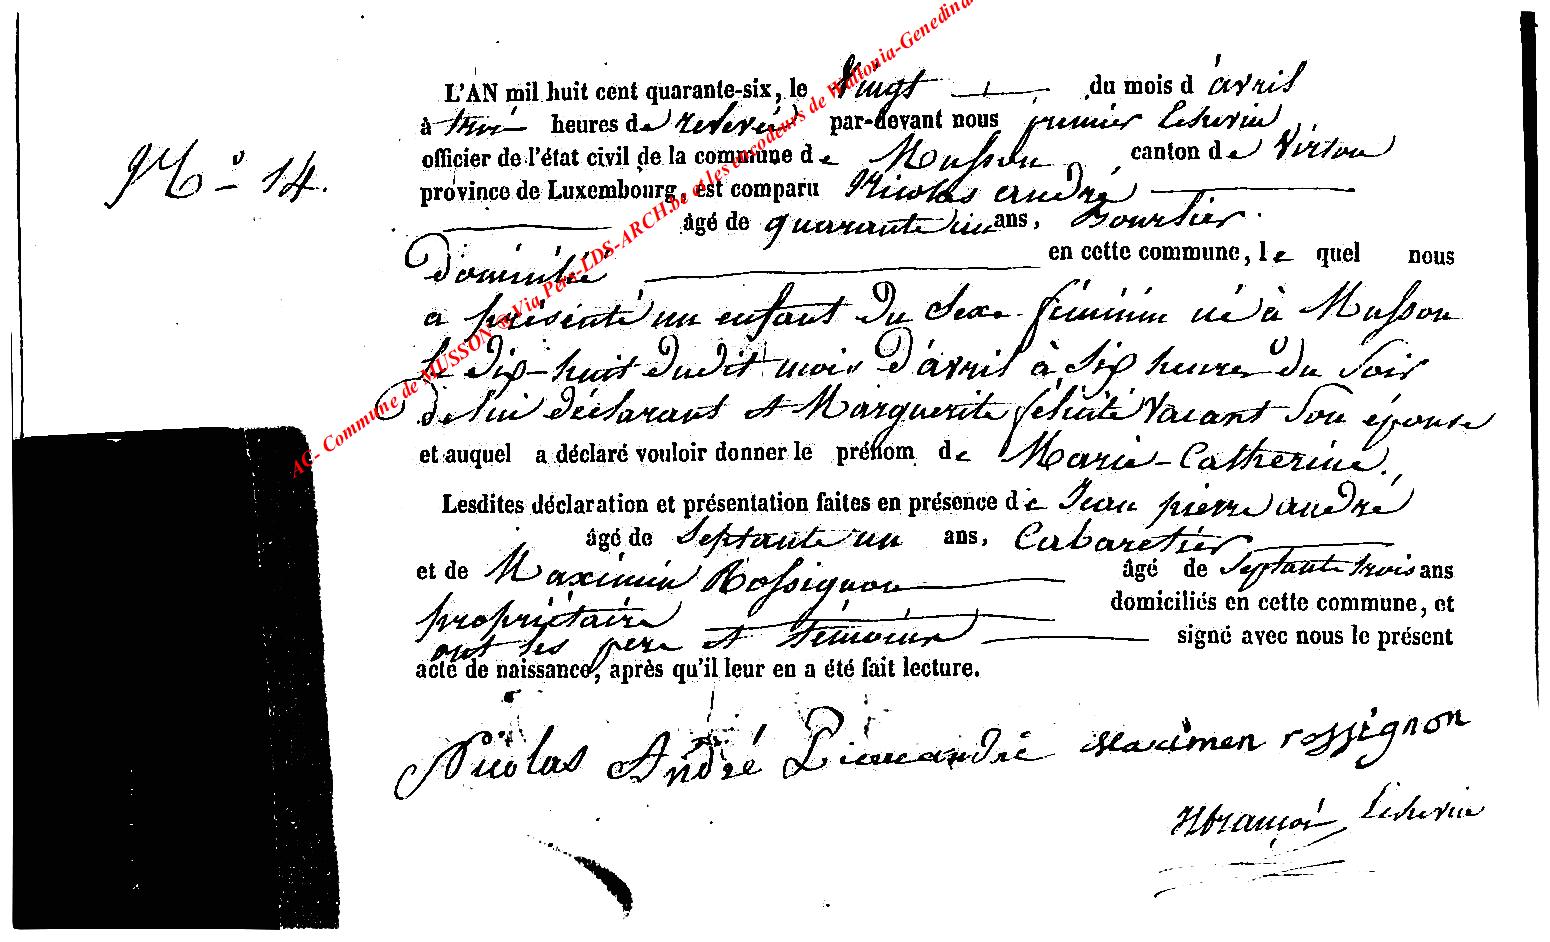 AC- Commune de MUSSON @ Via Pere-LDS-ARCH.be et les encodeurs de Wallonia-Genedinar
N.º 14.
L'AN mil huit cent quarante-six, le Vingt du mois d'avril
à trois heures de relevée par-devant nous premier Echevin
officier de l'état civil de la commune de Musson canton de Virton
province de Luxembourg, est comparu Nicolas andré
âgé de quarante un ans, Bourlier
domicilié en cette commune, le quel nous
a présenté un enfant du Sexe féminin né à Musson
le dix-huit dudit mois d'avril à Six heures du Soir
de lui déclarant et Marguerite félicité Vacant Son épouse
et auquel a déclaré vouloir donner le prénom de Marie-Catherine.
Lesdites déclaration et présentation faites en présence de Jean pierre andré
âgé de Septante un ans, Cabaretier
et de Maximin Rossignon âgé de Septante trois ans
propriétaire domiciliés en cette commune, et
ont les pere et témoins signé avec nous le présent
acte de naissance, après qu'il leur en a été fait lecture.
Nicolas André Maximen rossignon
Echevin